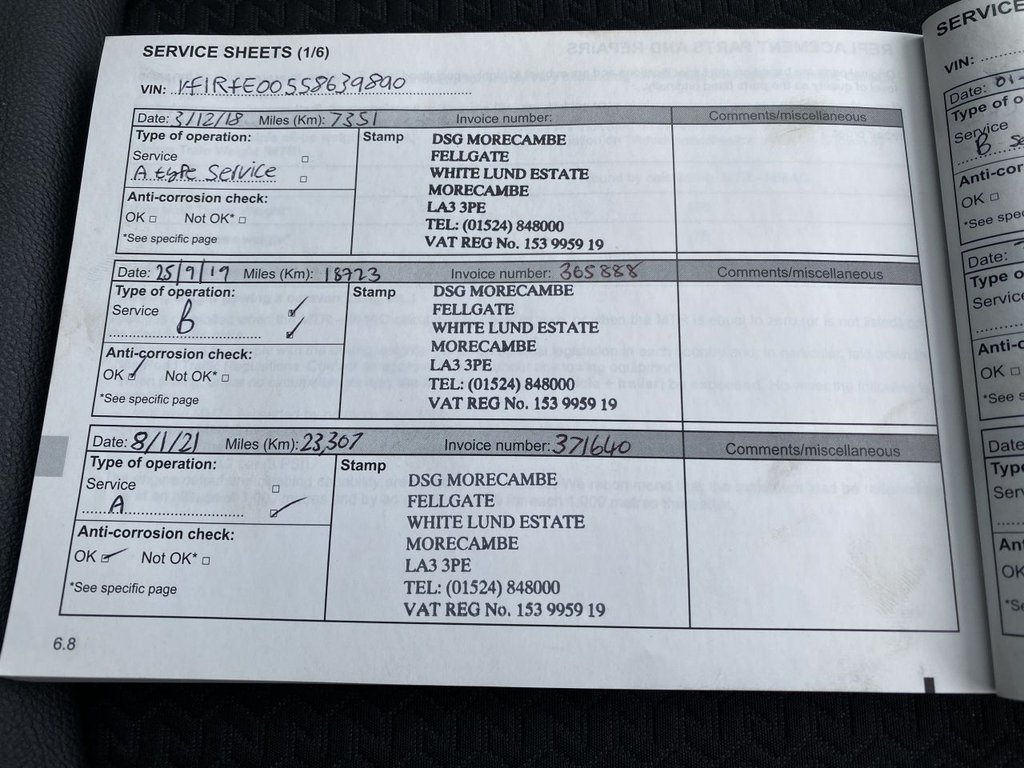 SERVICE SHEETS (1/6)
VIN: VF1RFE00558639890
Date: 3/12/18 Miles (Km): 7351 Invoice number: Comments/miscellaneous
Type of operation: Stamp
Service
A type Service
Anti-corrosion check:
OK Not OK*
*See specific page
DSG MORECAMBE
FELLGATE
WHITE LUND ESTATE
MORECAMBE
LA3 3PE
TEL: (01524) 848000
VAT REG No. 153 9959 19
Date: 25/9/19 Miles (Km): 18723 Invoice number: 365888 Comments/miscellaneous
Type of operation: Stamp
Service B
Anti-corrosion check:
OK Not OK*
*See specific page
DSG MORECAMBE
FELLGATE
WHITE LUND ESTATE
MORECAMBE
LA3 3PE
TEL: (01524) 848000
VAT REG No. 153 9959 19
Date: 8/1/21 Miles (Km): 23,307 Invoice number: 371640 Comments/miscellaneous
Type of operation: Stamp
Service
A
Anti-corrosion check:
OK Not OK*
*See specific page
DSG MORECAMBE
FELLGATE
WHITE LUND ESTATE
MORECAMBE
LA3 3PE
TEL: (01524) 848000
VAT REG No. 153 9959 19
6.8
SERVICE
VIN:
Date: 01-
Type of o
Service
B Se
Anti-cor
OK
*See spec
Date:
Type o
Service
Anti-c
OK
*See s
Date
Type
Serv
Ant
OK
*Se